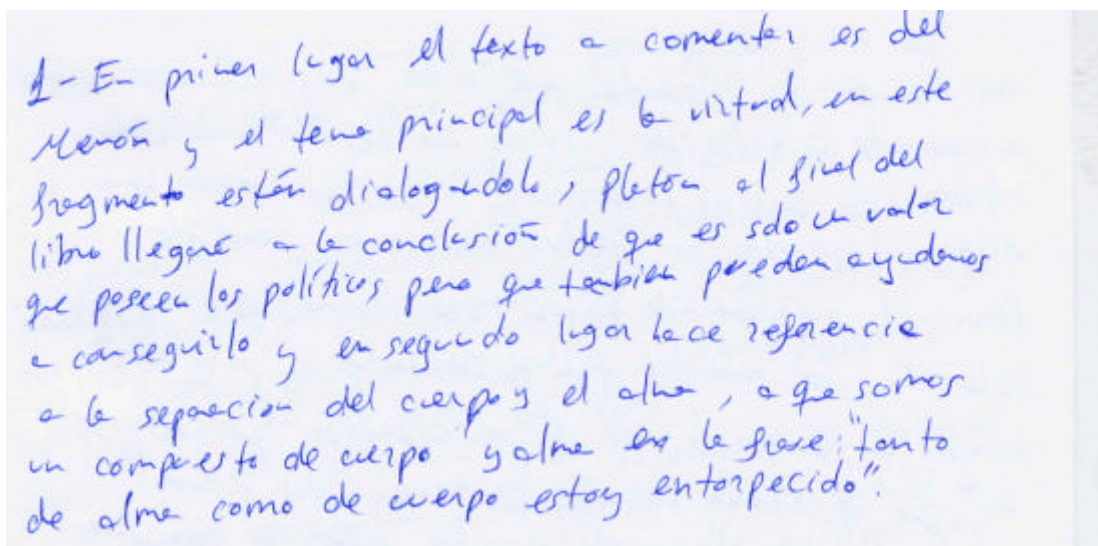 1- En primer lugar el texto a comentar es del
Menón y el tema principal es la virtud, en este
fragmento están dialogandolo, Platón al final del
libro llegará a la conclusión de que es solo un valor
que poseen los políticos pero que tambien pueden ayudarnos
a conseguirlo y en segundo lugar hace referencia
a la separacion del cuerpo y el alma, a que somos
un compuesto de cuerpo y alma en la frase: "tanto
de alma como de cuerpo estoy entorpecido".